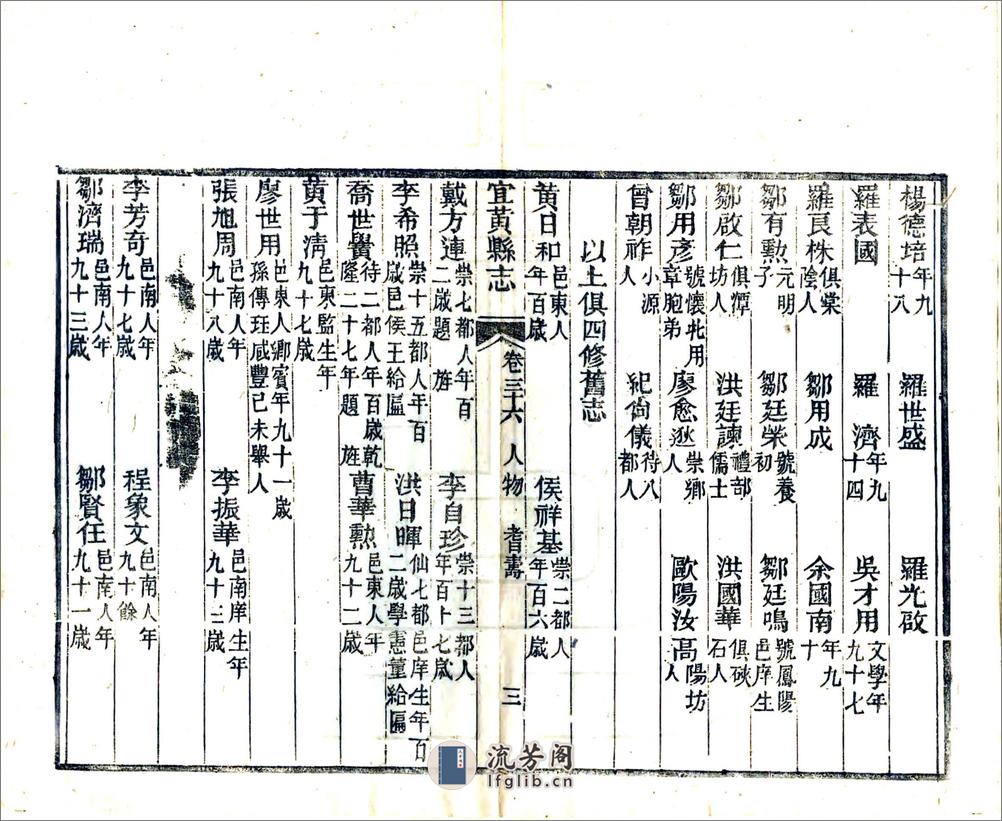 楊德培年九十八 羅世盛 羅光啟
羅表國 羅濟年九十四 吳才用文學年九十七
羅良株俱棠陰人 鄒用成 余國南年九十
鄒有勲元明子 鄒廷榮號養初 鄒廷鳴號鳳陽邑庠生
鄒啟仁俱潭坊人 洪廷諫禮部儒士 洪國華俱硤石人
鄒用彥號懷牝用章胞弟 廖愈逖崇鄉人 歐陽汝高陽坊人
曾朝祚小源人 紀尙儀待八都人
以上俱四修舊志
黃日和邑東人年百歲 侯祥基崇二都人年百六歲
宜黃縣志 卷三十六 人物 耆壽 三
戴方連崇七都人年百二歲題旌 李自珍崇十三都人年百十七歲
李希照崇十五都人年百歲邑侯王給匾 洪日暉仙七都邑庠生年百二歲學憲董給匾
喬世賢待二都人年百歲乾隆二十七年題旌 曹華勲邑東人年九十二歲
黃于淸邑東監生年九十七歲
廖世用邑東人鄉賓年九十一歲孫傳珏咸豐己未舉人
張旭周邑南人年九十八歲 李振華邑南庠生年九十三歲
李芳奇邑南人年九十七歲 程象文邑南人年九十餘
鄒濟瑞邑南人年九十三歲 鄒賢任邑南人年九十一歲
流芳阁
lfglib.cn